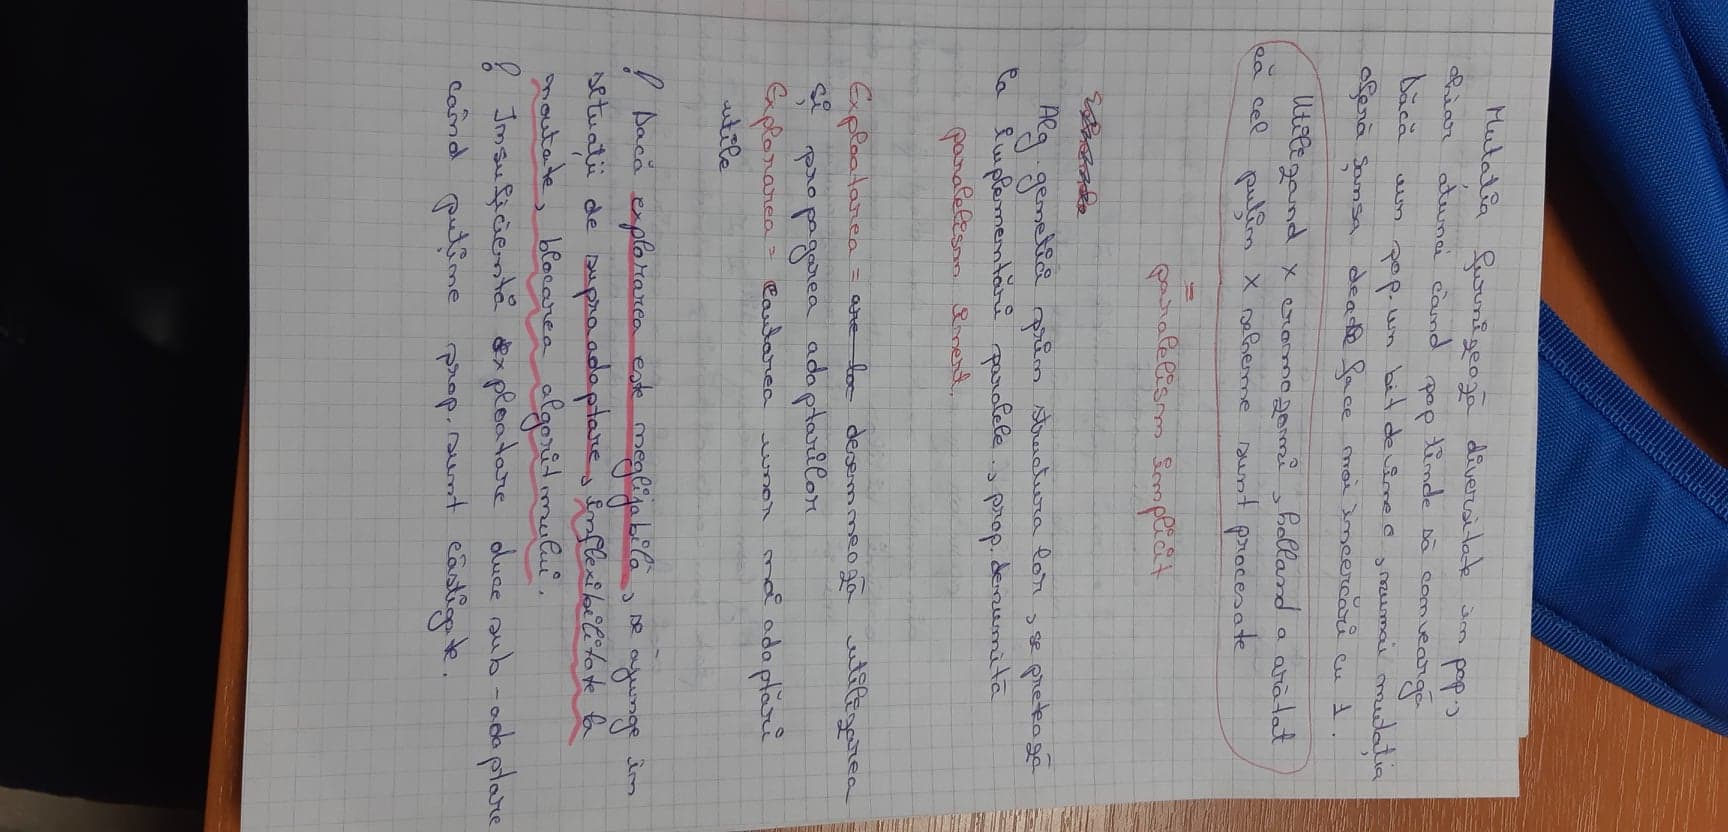 Mutația furnizează diversitate în pop.,
chiar atunci când pop tinde să conveargă
Dăcă un pop. un bit devine 0, numai mutația
oferă șansa dea face noi încercări cu 1.
Utilizand x cromozomi, holland a arătat
că cel puțin x scheme sunt procesate
=
paralelism implicit
Alg. genetici prin structura lor, se pretează
la implementări paralele., prop. denumită
paralelism inert.
Exploatarea = are loc desemnează utilizarea
și propagarea adaptarilor
Explorarea = Cautarea unor noi adaptări
utile
! Dacă explorarea este neglijabilă, se ajunge în
situații de supraadaptare, inflexibilitate la
noutate, blocarea algoritmului.
! Insuficientă exploatare duce sub-adaptare
când puține prop. sunt câștigate.